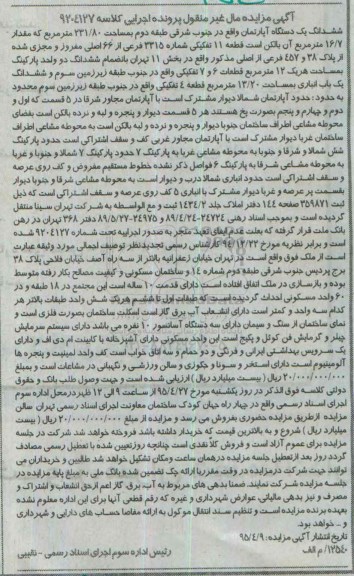 آگهی مزایده مال غیر منقول پرونده اجرایی کلاسه ۹۲۰۴۱۲۷
ششدانگ یک دستگاه آپارتمان واقع در جنوب شرقی طبقه دوم بمساحت ۲۳۱/۸۰ مترمربع که مقدار
۱۶/۷ مترمربع آن بالکن است قطعه ۱۱ تفکیکی شماره ۳۳۱۵ فرعی از ۶۶ اصلی مفروز و مجزی شده
از پلاک ۳۸ و ۴۵۷ فرعی از اصلی مذکور واقع در بخش ۱۱ تهران بانضمام ششدانگ دو واحد پارکینگ
بمساحت هریک ۱۲ مترمربع قطعات ۶ و ۷ تفکیکی واقع در جنوب طبقه زیرزمین سوم و ششدانگ
یک باب انباری بمساحت ۱۳/۲۰ مترمربع قطعه ۴ تفکیکی واقع در جنوب طبقه زیرزمین سوم محدود
به حدود: حدود آپارتمان شمالا دیوار مشترک است با آپارتمان مجاور شرقا در ۵ قسمت که اول و
دوم و چهارم و پنجم بصورت پخ هستند هر ۵ قسمت دیوار و پنجره و لبه و نرده بالکن است بفضای
محوطه مشاعی اطراف ساختمان جنوبا دیوار و پنجره و نرده و لبه بالکن است به محوطه مشاعی اطراف
ساختمان غربا دیوار مشترک است با آپارتمان مجاور غربی کف و سقف اشتراکی است حدود پارکینگ
شش شمالا و شرقا و جنوبا به محوطه مشاعی غربا به پارکینگ ۷ حدود پارکینگ ۷ شمالا و جنوبا و غربا
به محوطه مشاعی شرقا به پارکینگ ۶ فواصل ذکر نشده خطوط مستقیم مفروض و کف روی عرصه
و سقف اشتراکی است حدود انباری شمالا درب و دیوار است به محوطه مشاعی شرقا و جنوبا دیوار
بقسمت پر عرصه و غربا دیوار مشترک با انباری ۵ کف روی عرصه و سقف اشتراکی است که ذیل
ثبت ۳۵۹۸۷۱ صفحه ۱۴۴ دفتر املاک جلد ۱۴۳۴/۲ ثبت و مع الواسطه به شرکت تهران سینا منتقل
گردیده است و بموجب اسناد رهنی ۲۴۷۲۴-۸۹/۴/۲۴ و ۲۴۹۷۵-۸۹/۵/۲۷ دفتر ۳۶۸ تهران در رهن
بانک ملت قرار گرفته که بعلت عدم ایفای تعهد منجر به صدور اجراییه تحت شماره ۹۲۰۴۱۲۷ شده
است و برابر نظریه مورخ ۹۴/۱۲/۲۲ کارشناس رسمی تجدیدنظر توصیف اجمالی مورد وثیقه عبارت
است از ملک فوق واقع است در تهران خیابان زعفرانیه بالاتر از سه راه آصف خیابان فلاحی پلاک ۳۸
برج پردیس جنوب شرقی طبقه دوم شماره ۱۴ و ساختمان مسکونی و کیفیت مصالح بکار رفته متوسط
بوده و بازسازی در ملک اتفاق افتاده است دارای قدمت ۱۰ ساله است این مجتمع در ۱۸ طبقه و در
۶۰ واحد مسکونی احداث گردیده است که طبقات اول تا ششم هریک شش واحد طبقات بالاتر هر
کدام سه واحد و کمتر است دارای انشعاب آب برق گاز است اسکلت ساختمان بصورت فلزی است و
نمای ساختمان از سنگ و سیمان دارای سه دستگاه آسانسور ۱۰ نفره می باشد دارای سیستم سرمایش
چیلر و گرمایش فن کوئل و پکیج است این واحد مسکونی دارای آشپزخانه با کابینت ام دی اف و دارای
یک سرویس بهداشتی ایرانی و فرنگی و دو حمام و سه اتاق خواب است کف واحد لمینیت و پنجره ها
آلومینیوم است دارای استخر و سونا و جکوزی و سالن ورزشی و نگهبانی در مشاعات است و بمبلغ
۲۰/۰۰۰/۰۰۰/۰۰۰ ریال (بیست میلیارد ریال) ارزیابی شده است و جهت وصول طلب بانک و حقوق
دولتی کلاسه فوق الذکر در روز یکشنبه مورخ ۹۵/۴/۲۷ از ساعت ۹ الی ۱۲ ظهر در محل اداره سوم
اجرای اسناد رسمی واقع در چهارراه جهان کودک ساختمان معاونت اجرای اسناد رسمی تهران سالن
مزایده از طریق مزایده حضوری بفروش می رسد و مزایده از مبلغ ۲۰/۰۰۰/۰۰۰/۰۰۰ ریال (بیست
میلیارد ریال) شروع و به بالاترین قیمت که خریدار داشته باشد فروخته خواهد شد شرکت در جلسه
مزایده برای عموم آزاد است و فروش کلا نقدی است چنانچه روز تعیین شده با تعطیل رسمی مصادف
گردد روز بعد از تعطیل جلسه مزایده در همان ساعت و مکان تشکیل خواهد شد طالبین و خریداران می
توانند جهت شرکت در مزایده در وقت مقرر با ارائه چک تضمین شده بانک ملی به مبلغ پایه مزایده در
جلسه مزایده شرکت نمایند. ضمنا بدهی های مربوط به آب، برق، گاز اعم از حق انشعاب و اشتراک و
مصرف و نیز بدهی مالیاتی، عوارض شهرداری و غیره که رقم قطعی آنها برای این اداره معلوم نشده
بعهده برنده مزایده است و تنظیم سند انتقال موکول به ارائه مفاصا حساب های دارایی و شهرداری
و .. خواهد بود.
تاریخ انتشار آگهی مزایده: ۹۵/۴/۹
۱۲۵۴۰/ م الف رئیس اداره سوم اجرای اسناد رسمی - نائیبی